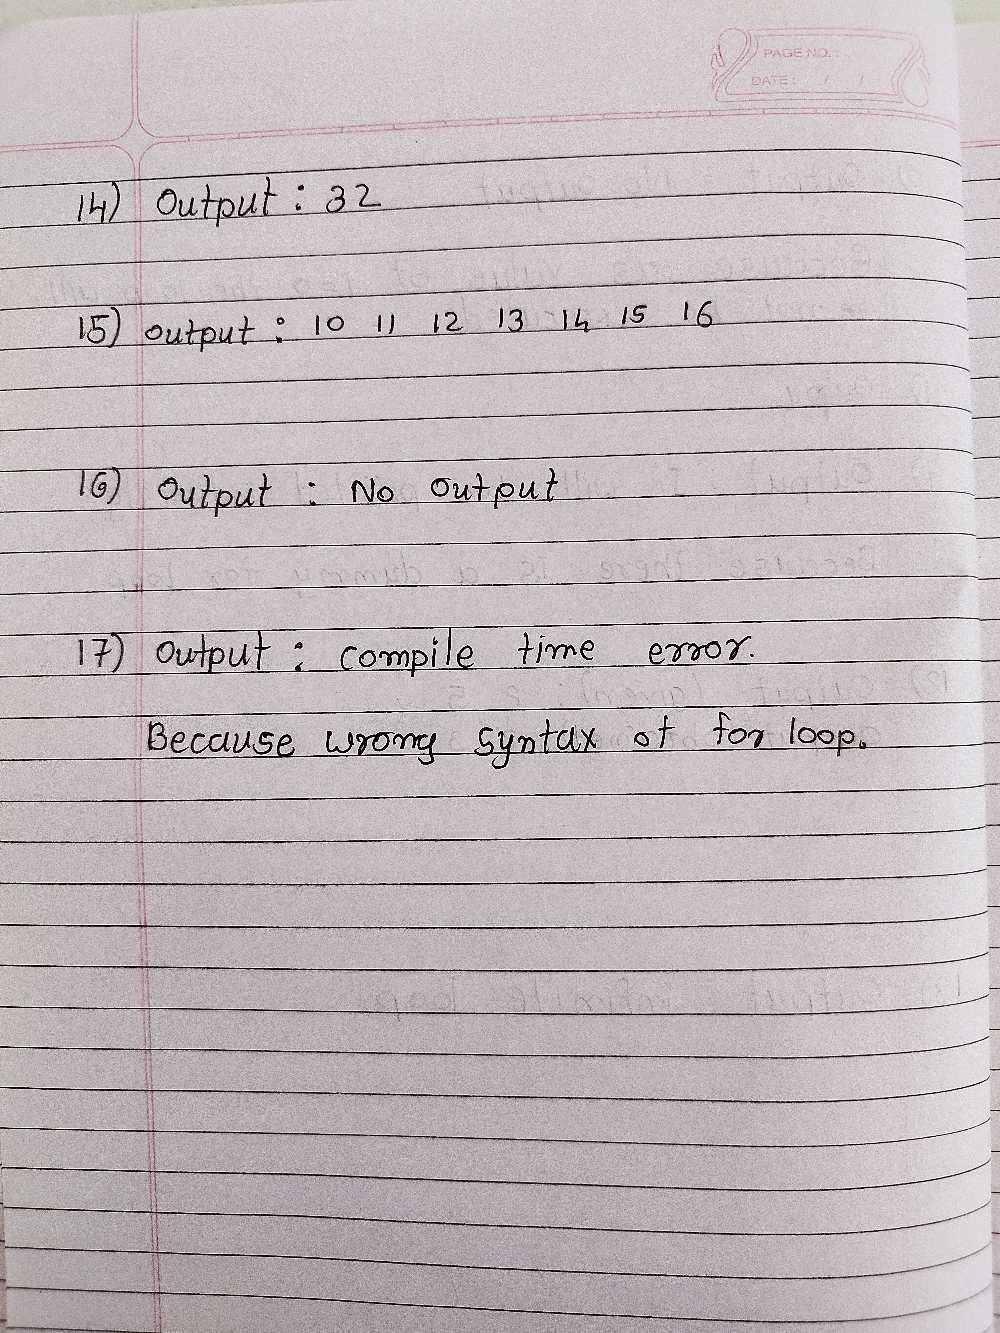 PAGE NO. :
DATE : / /
14) Output : 32
15) output : 10 11 12 13 14 15 16
16) Output : No output
17) Output : compile time error.
Because wrong syntax of for loop.